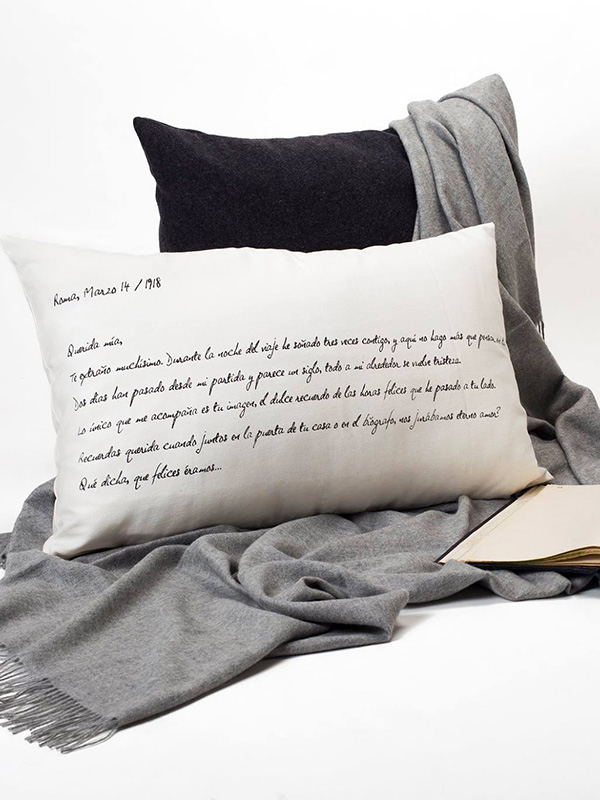 Roma, Marzo 14 / 1918
Querida mía,
Te extraño muchísimo. Durante la noche del viaje he soñado tres veces contigo, y aquí no hago más que pensar
Dos días han pasado desde mi partida y parece un siglo, todo a mi alrededor se vuelve tristeza.
Lo único que me acompaña es tu imagen, el dulce recuerdo de las horas felices que he pasado a tu lado.
Recuerdas querida cuando juntos en la puerta de tu casa o en el biógrafo, nos jurábamos eterno amor?
Qué dicha, que felices éramos...